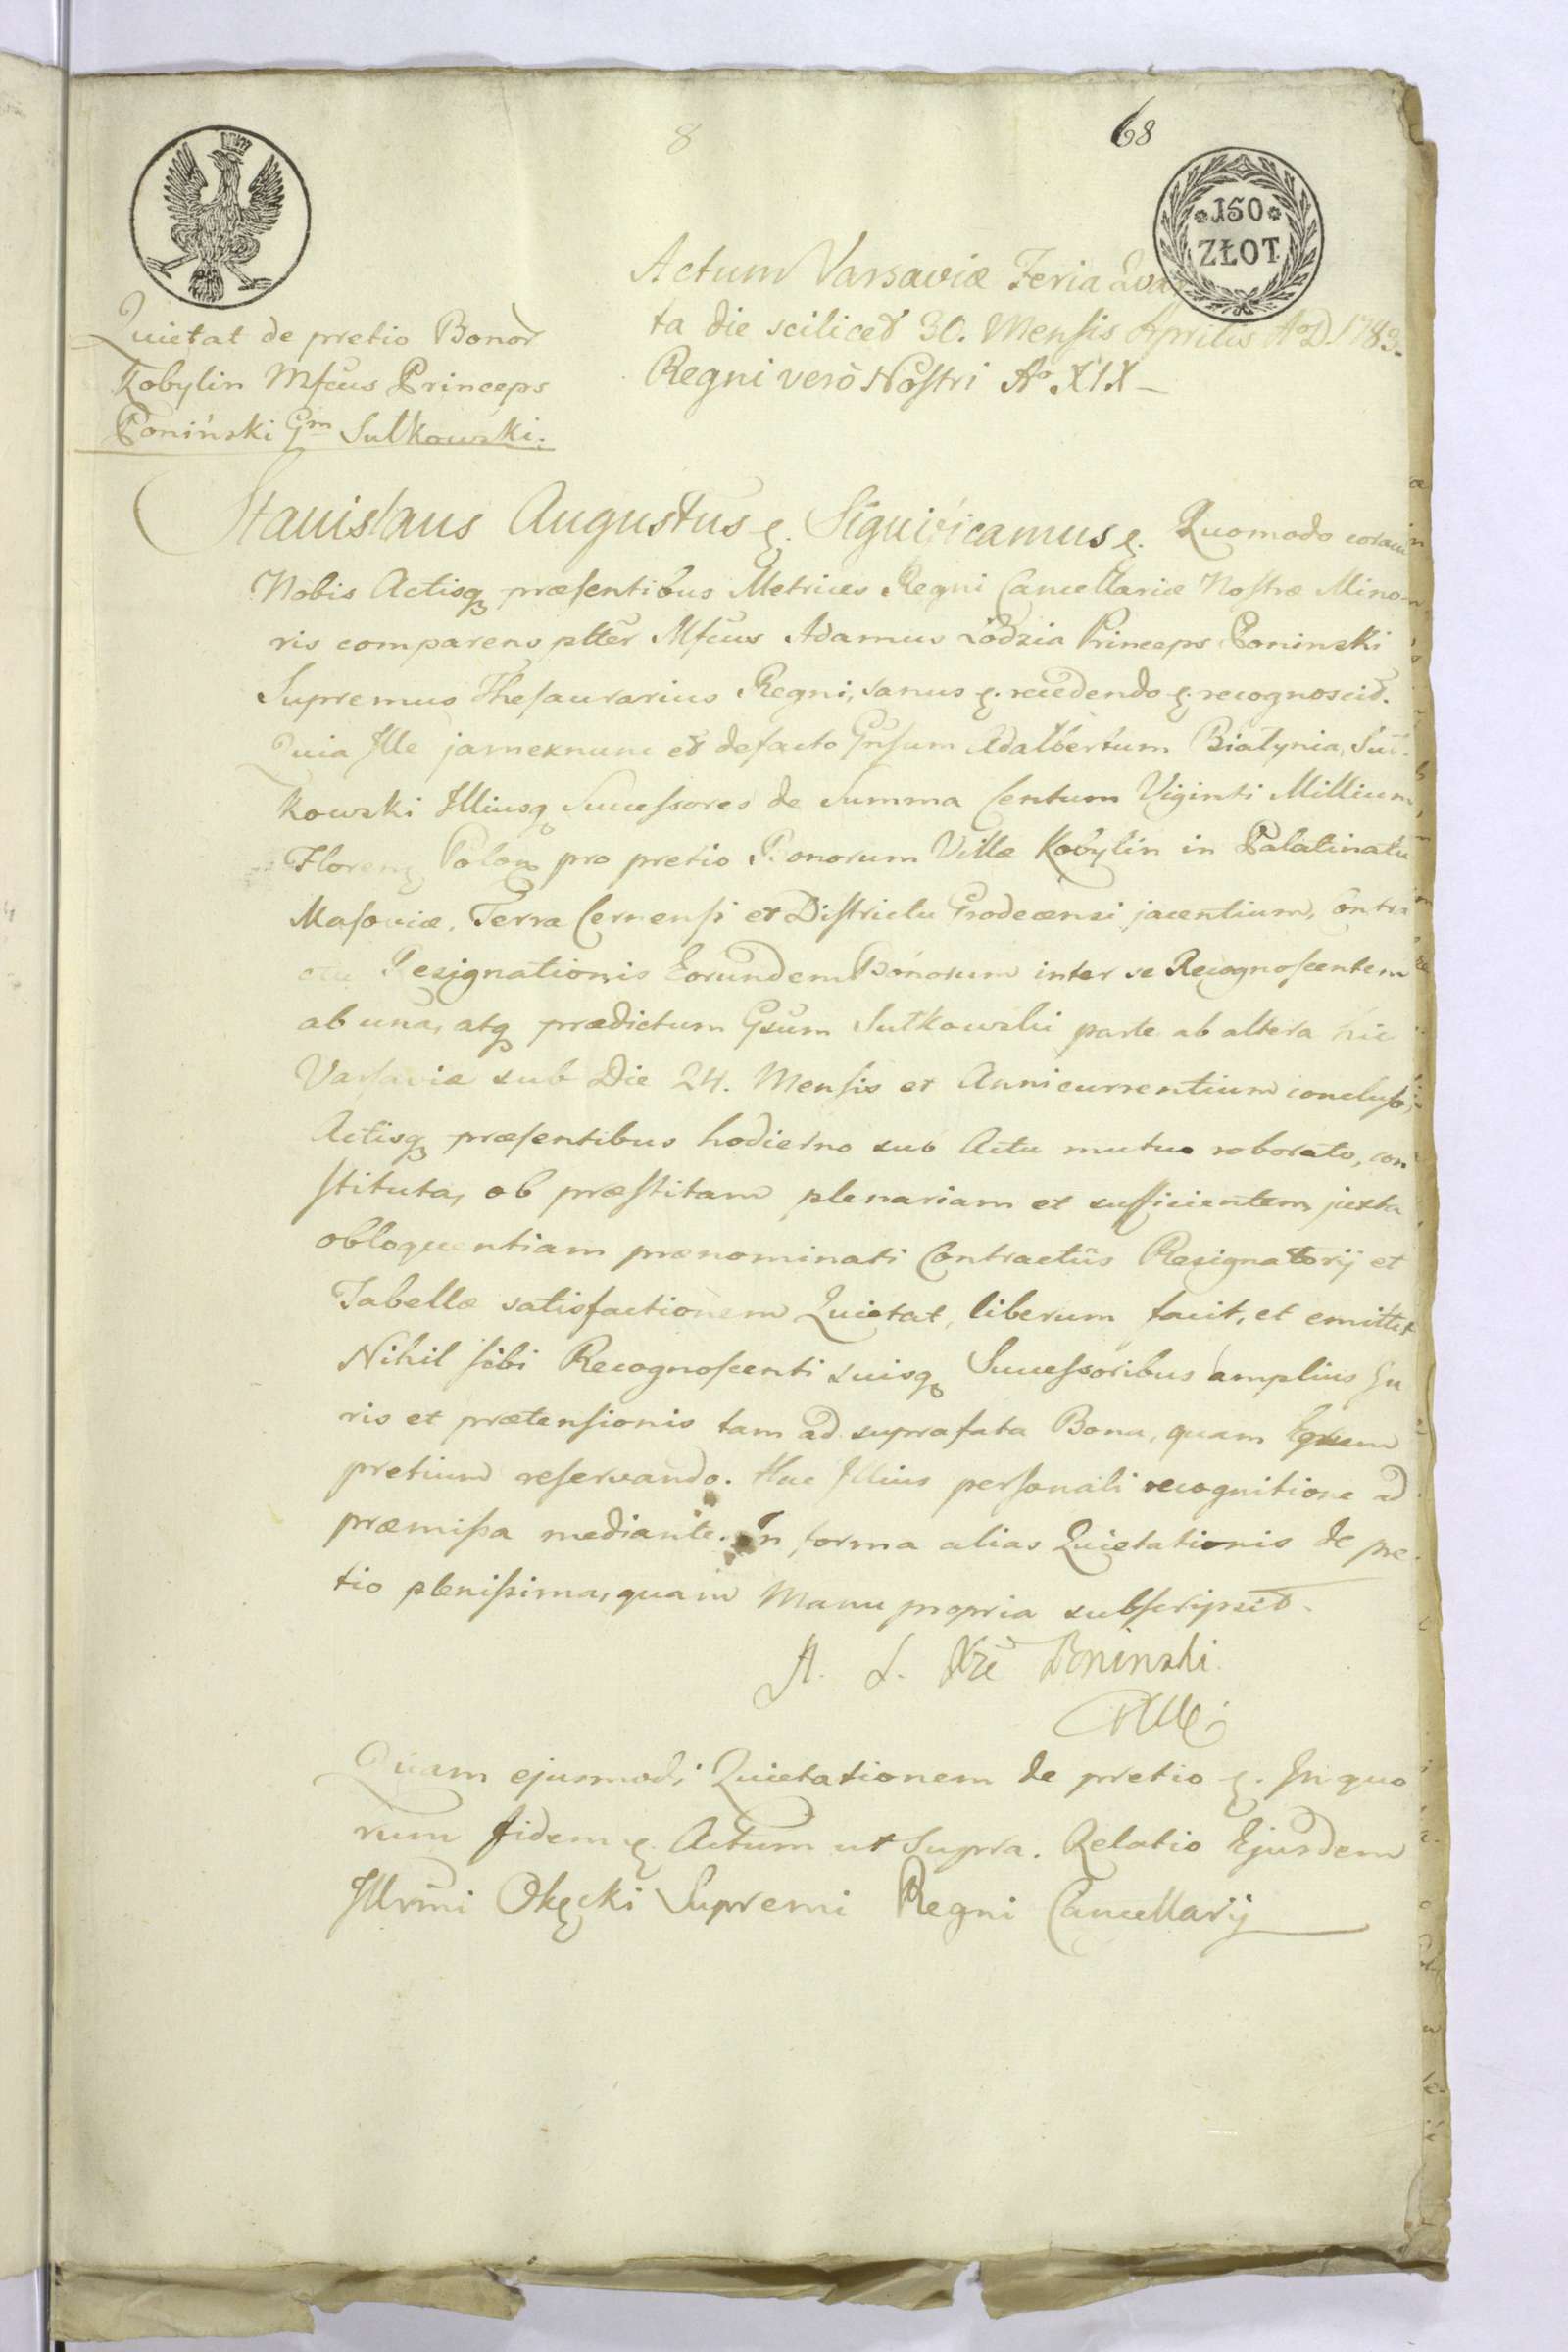 8
68
150
ZŁOT
Actum Varsaviæ Feria Quar
ta die scilicet 30. Mensis Aprilis AoD 1783.
Regni verò Nostri Ao XIX
Quietat de pretio Bonor
Kobylin Mfcus Princeps
Poniński Gm Sułkowski.
Stanislaus Augustus &. Significamus &. Quomodo coram
Nobis Actisq præsentibus Metrices Regni Cancellariæ Nostræ Mino-
ris comparens pltter Mfcus Adamus Łodzia Princeps Poninski
Supremus Thesaurarius Regni, sanus &. recedendo &. recognoscit.
Quia Ille jamexnunc et defacto Gnsum Adalbertum Białynia, Suł-
kowski Illiusq Successores de Summa Centum Viginti Millium
Floren Polon pro pretio Bonorum Villæ Kobylin in Palatinatu
Masoviæ, Terra Cernensi et Districtu Grodecensi jacentium, Contra
ctu Resignationis Eorundem Bonorum inter se Recognoscentem
ab una, atq prædictum Gsum Sułkowski parte ab altera hic
Varsaviæ sub Die 24. Mensis et Anni currentium concluso,
Actisq præsentibus hodierno sub Actu mutuo roborato, con
stituta, ob præstitam plenariam et sufficientem juxta
obloquentiam prænominati Contractûs Resignatorij et
Tabellæ satisfactionem Quietat, liberum facit, et emittit
Nihil sibi Recognoscenti suisq Successoribus amplius Ju
ris et prætensionis tam ad suprafata Bona, quam
pretium reservando. Hac Illius personali recognitione ad
præmissa mediante. In forma alias Quietationis de pre
tio plenissima, quam Manu propria subscripsit.
A. Ł. Xże Poninski
Quam ejusmodi Quietationem de pretio &. In quo
rum fidem &. Actum ut Supra. Relatio Ejusdem
Illrmi Okęcki Supremi Regni Cancellarij